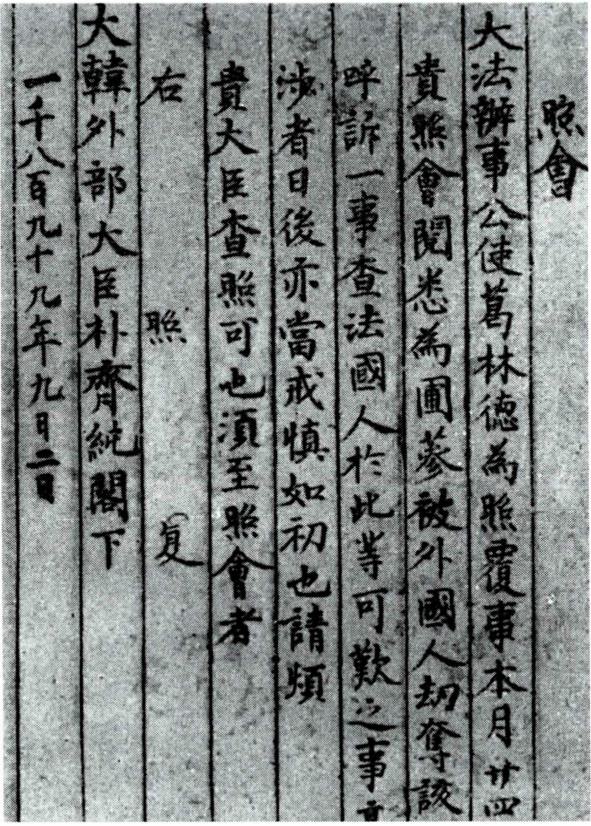 照會
大法辦事公使葛林德為照覆事本月廿四
貴照會閱悉為圃蔘被外國人刧奪該
呼訴一事查法國人於此等可歎之事
涉者日後亦當戒慎如初也請煩
貴大臣查照可也須至照會者
右 照 复
大韓外部大臣朴齊純閣下
一千八百九十九年九月二日